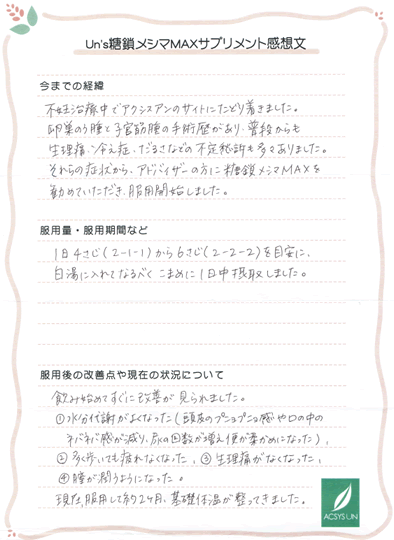 Un's糖鎖メシマMAXサプリメント感想文
今までの経緯
不妊治療中でアクシスアンのサイトにたどり着きました。
卵巣のう腫と子宮筋腫の手術歴があり、普段からも
生理痛、冷え症、だるさなどの不定秘訴も多々ありました。
それらの症状から、アドバイザーの方に糖鎖メシマMAXを
勧めていただき、服用開始しました。
服用量・服用期間など
1日4さじ(2-1-1)から6さじ(2-2-2)を目安に、
白湯に入れてなるべくこまめに1日中摂取しました。
服用後の改善点や現在の状況について
飲み始めてすぐに改善が見られました。
①水分代謝がよくなった(頭皮のプニョプニョ感や口の中の
ネバネバ感が減り、尿の回数が増え便が柔かめになった)、
②多く歩いても疲れなくなった、③生理痛がなくなった、
④膣が潤うようになった。
現在、服用して約2ヶ月、基礎体温が整ってきました。
ACSYS UN